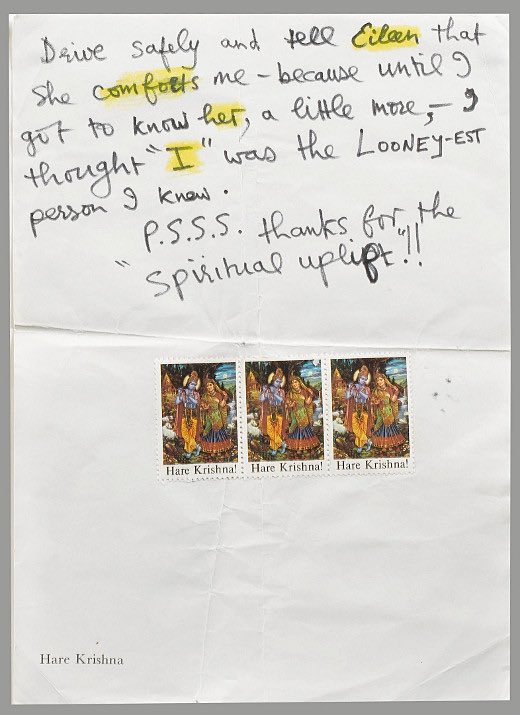 Drive safely and tell Eileen that
She comforts me - because until I
got to know her, a little more, - I
thought "I" was the LOONEY-EST
person I know.
P.S.S.S. thanks for the
"Spiritual uplift"!!
Hare Krishna! Hare Krishna! Hare Krishna!
Hare Krishna